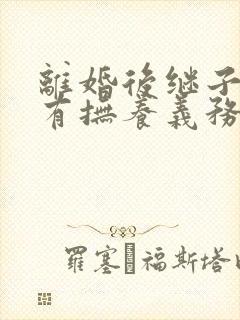 離婚後继子
有撫養義務
羅塞 福斯塔